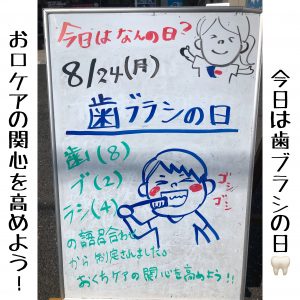 今日は歯ブラシの日🦷
今日はなんの日?
8/24(月)
歯ブラシの日
歯(8)
ブ(2)
ラシ(4)
ゴシ
ゴシ
の語呂合わせ
から制定されました。
おくちケアの関心を高めよう!!
お口ケアの関心を高めよう!